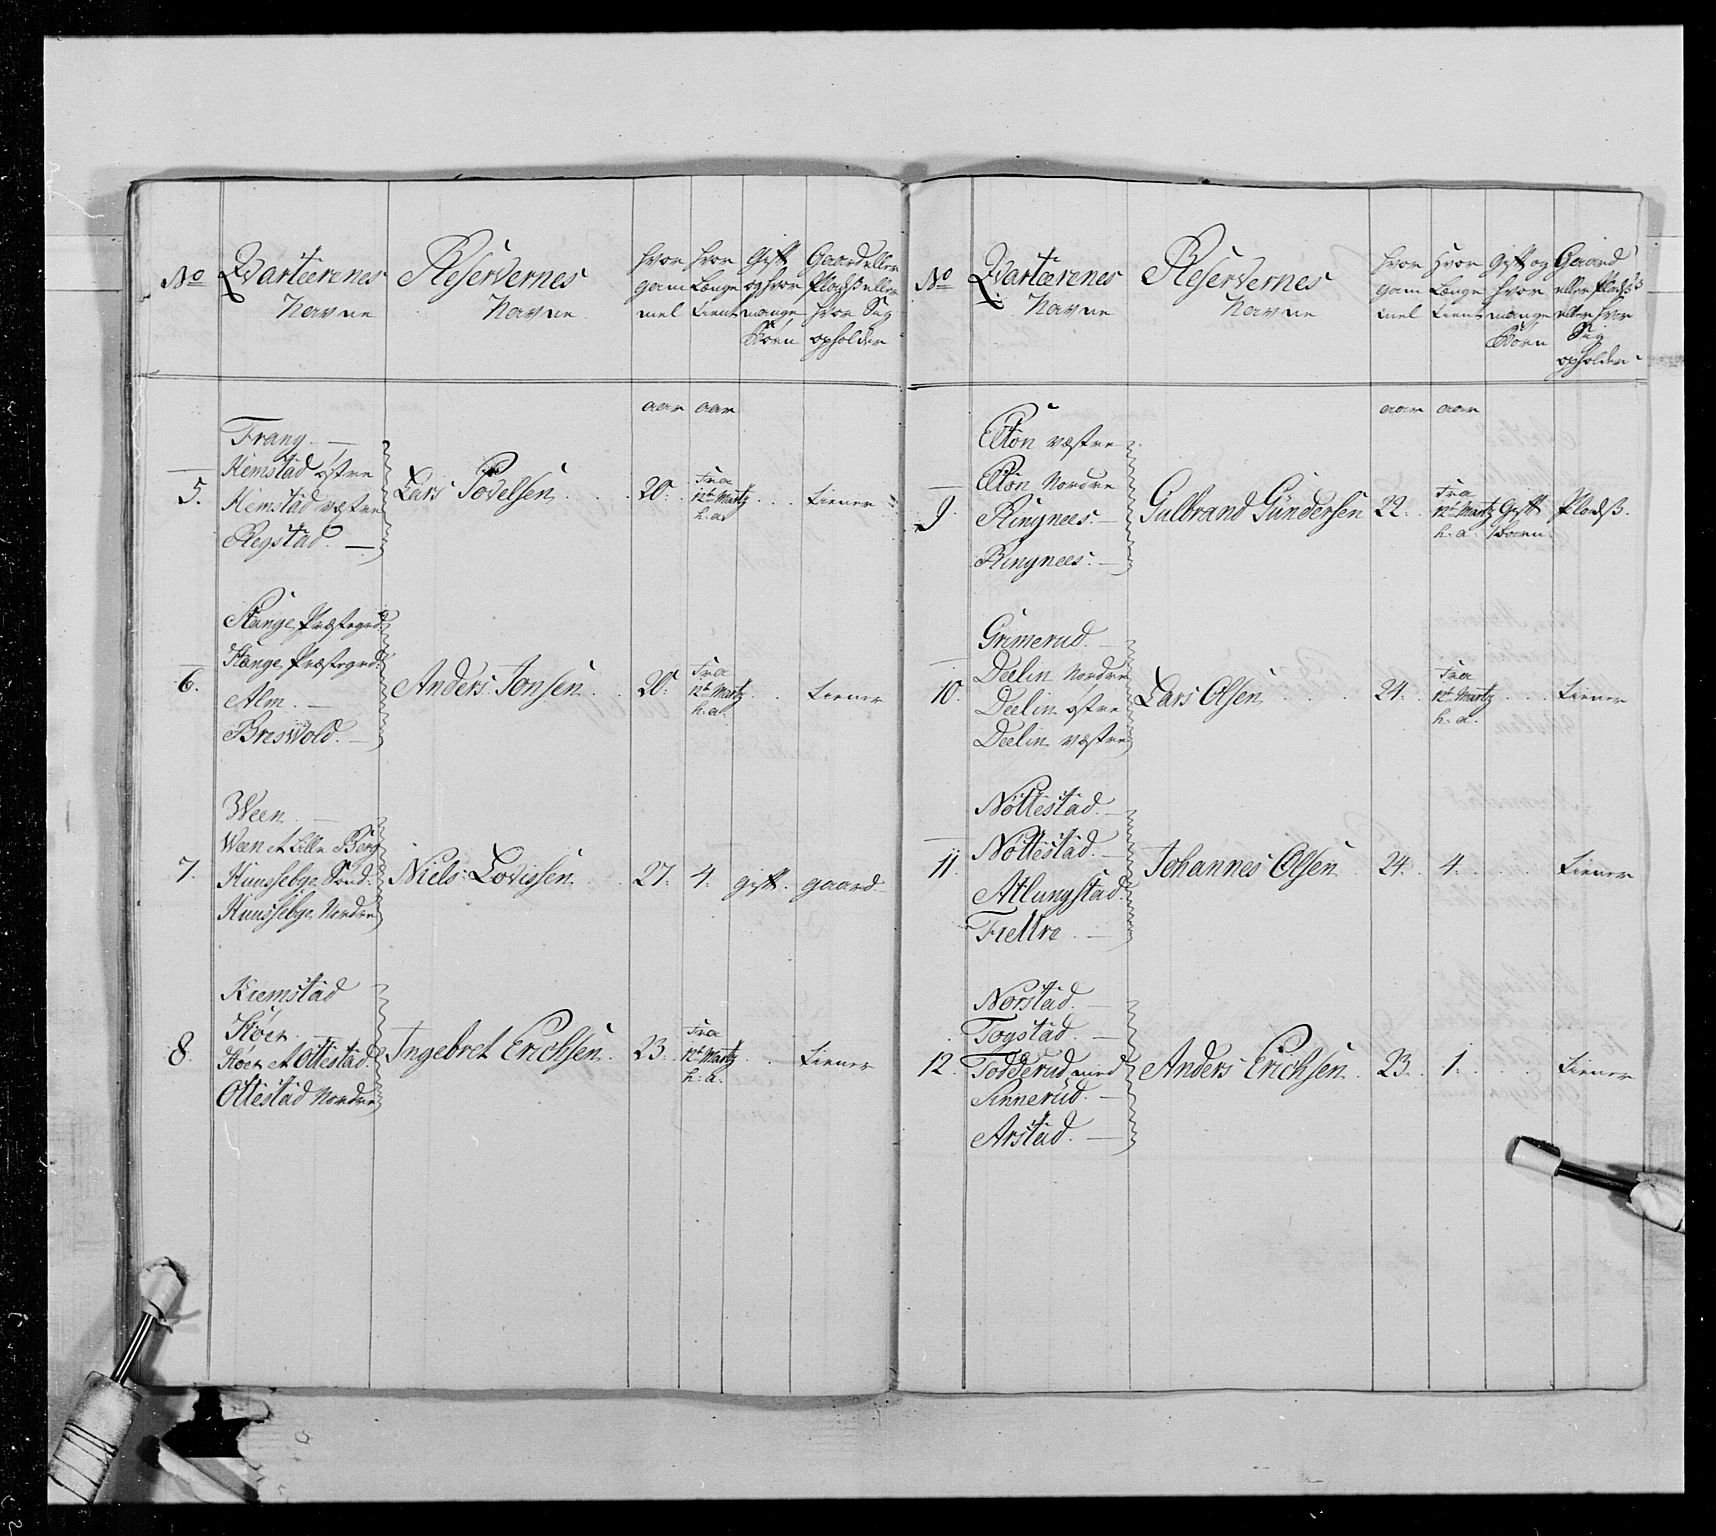 No
Qvarteerenes
Navne
Reservernes
Navne
hvor
gam
mel
hvor
Længe
tient
Gift
og hvor
mange
Börn
Gaard eller
Pladß eller
hvor Sig
opholder
aar aar
5.
Frang. —
Hemstad østre
Hemstad væstre
Regstad. —
Lars Povelsen
20.
Fra
12te Martz
h. a.
tiener
6.
Stange Præstegrd:
Stange Præstegrd:
Alm. —
Breswold. —
Anders Jonsen
20.
Fra
12te Martz
h. a.
tiener
7.
Ween. —
Ween et Lille Berg
Huussebye Sond:
Huussebye Nordre
Niels Lovissen
27.
4.
gift.
gaard.
8.
Kiemstad
Hoen
Hoen et Ottestad.
Ottestad Nordre
Ingebret Erichsen
23.
Fra
12te Martz
h. a.
tiener
No
Qvarteerenes
Navne
Reservernes
Navne
hvor
gam
mel
Hvor
Længe
tient
Gift og
hvor
mange
Börn
Gaard
eller Pladß
eller hvor
Sig
opholder
aar aar
9.
Elton væstre
Elton Nordre
Ringnees. —
Ringnees. —
Gulbrand Gundersen
22.
Fra
12te Martz
h. a.
Gift
1 barn
Pladß.
10.
Grimerud. —
Deelin Nordre
Deelin østre
Deelin væstre
Lars Olsen
24.
Fra
12te Martz
h. a.
tiener
11.
Nöttestad. —
Nöttestad. —
Atlungstad.
Fiettre. —
Johannes Olsen
24.
4.
tiener
12.
Norstad. —
Togstad. —
Todderud med
Sinnerud. —
Arstad. —
Anders Erichsen
23.
1.
tiener